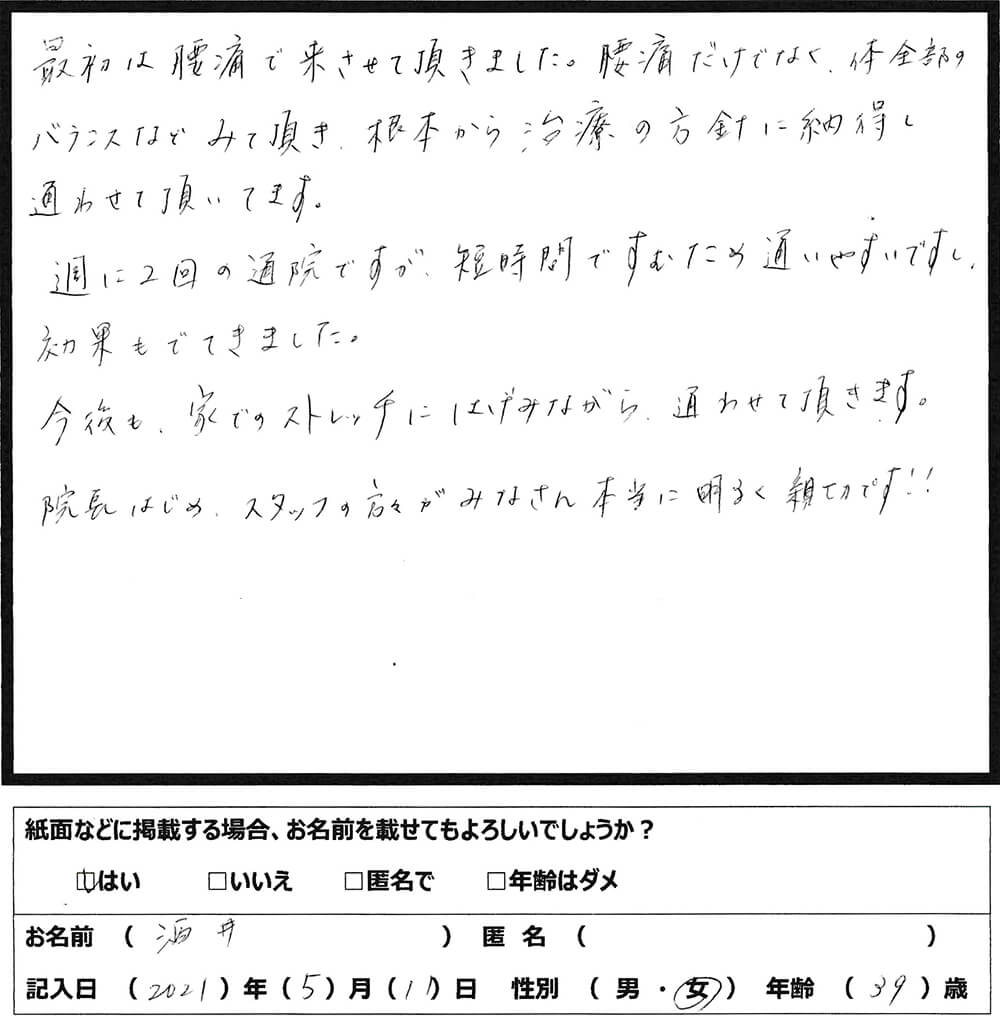 最初は腰痛で来させて頂きました。腰痛だけでなく、体全部の
バランスなどみて頂き、根本から治療の方針に納得し
通わせて頂いてます。
週に2回の通院ですが、短時間ですむため通いやすいですし、
効果もでてきました。
今後も、家でのストレッチにはげみながら、通わせて頂きます。
院長はじめ、スタッフの方々がみなさん本当に明るく親切です!!
紙面などに掲載する場合、お名前を載せてもよろしいでしょうか？
☑はい □いいえ □匿名で □年齢はダメ
お名前 （酒井） 匿名 （ ）
記入日 （2021）年（5）月（11）日 性別 （男・女） 年齢 （39）歳